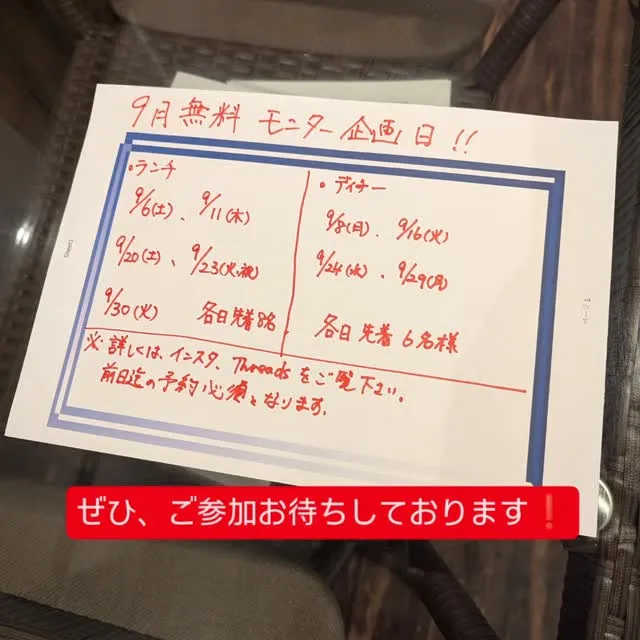 9月無料 モニター企画日!!
・ランチ
9/6(土)、9/11(木)
9/20(土)、9/23(火、祝)
9/30(火) 各日先着8名
・ディナー
9/8(月)、9/16(火)
9/24(水)、9/29(月)
各日先着6名様
※詳しくは、インスタ、Threadsをご覧下さい。
前日迄の予約必須となります。
ぜひ、ご参加お待ちしております❗